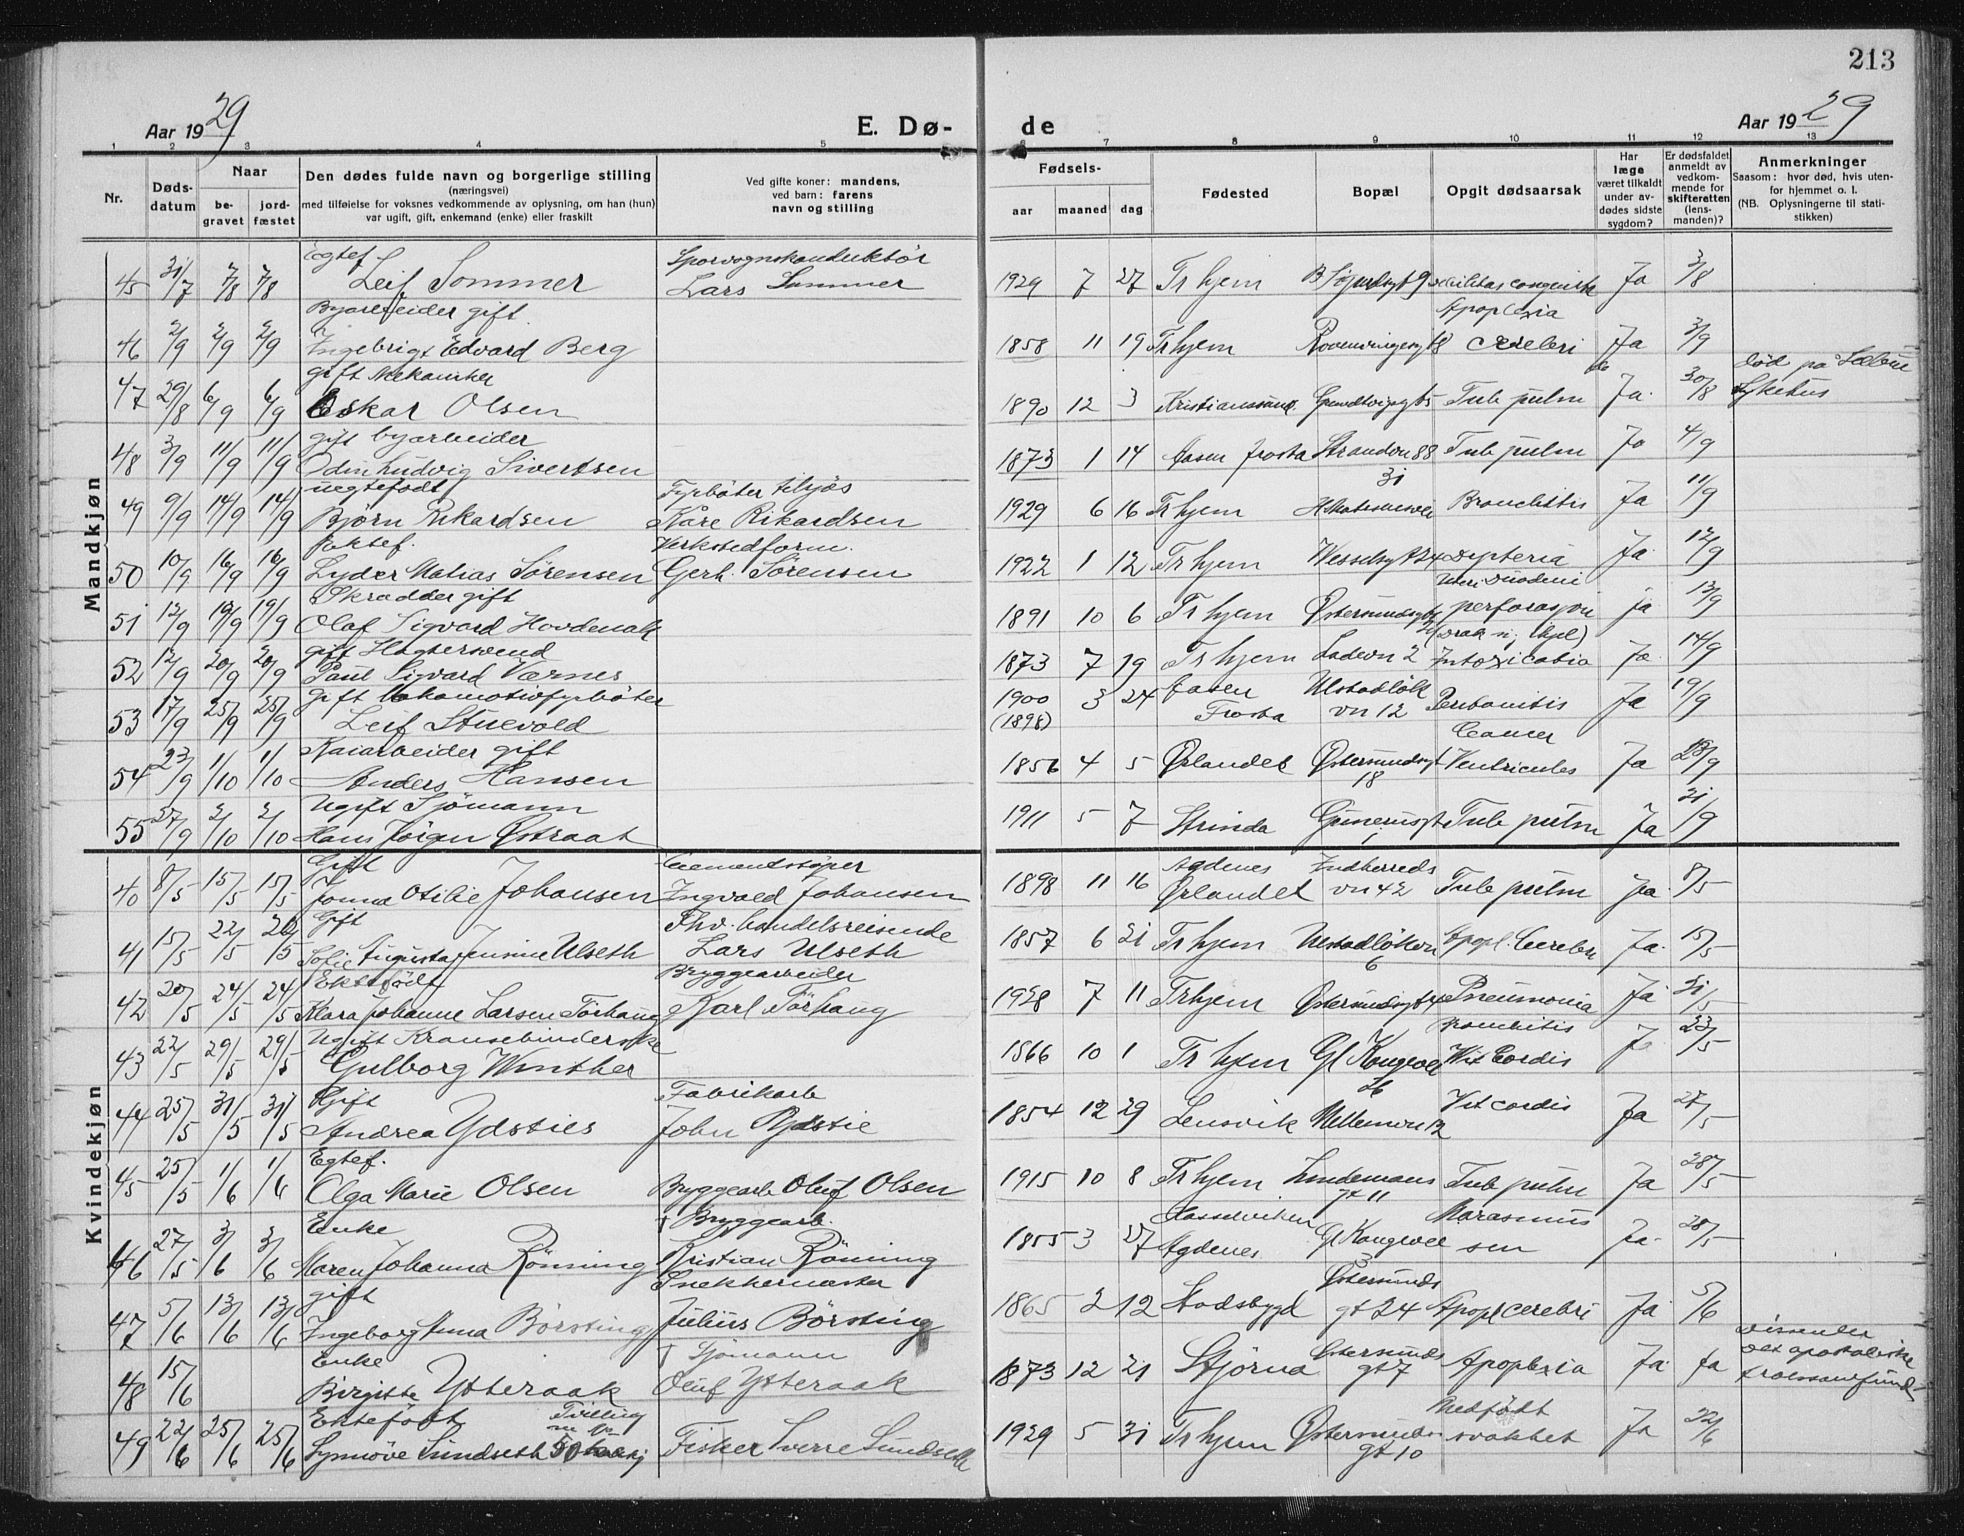 213
Aar 1929 E. Dø- de Aar 1929
1 2 3 4 5 6 7 8 9 10 11 12 13
Nr. Døds-datum Naar be-gravet jord-fæstet Den dødes fulde navn og borgerlige stilling (næringsvei) med tilføielse for voksnes vedkommende av oplysning, om han (hun) var ugift, gift, enkemand (enke) eller fraskilt Ved gifte koner: mandens, ved barn: farens navn og stilling Fødsels- aar maaned dag Fødested Bopæl Opgit dødsaarsak Har læge været tilkaldt under av-dødes sidste sygdom? Er dødsfaldet anmeldt av vedkom-mende for skifteretten (lens-manden)? Anmerkninger Saasom: hvor død, hvis uten-for hjemmet o. l. (NB. Oplysningerne til stati-stikken)
Mandkjøn
Egtef. Sporvognskonduktør
45 31/7 7/8 7/8 Leif Sommer Lars Sommer 1929 7 27 Trhjem Ja 3/8
Byarbeider gift Apoplexia
46 2/9 2/9 Ingebrigt Edvard Berg 1858 11 19 Trhjem cerebri Ja 3/9
gift Mekaniker død på
47 29/8 6/9 6/9 Oskar Olsen 1890 12 3 Kristianssund Tub pulm Ja 30/8 sykehus
gift byarbeider
48 3/9 11/9 11/9 Odin Ludvig Sivertsen 1873 1 14 Aasen Frosta Strandvn 88 Tub pulm Ja 4/9
uegtefødt Fyrbøter tilsjøs 31
49 9/9 14/9 14/9 Bjørn Rikardsen Kåre Rikardsen 1929 6 16 Trhjem Bronchitis Ja 11/9
Ektef. Verkstedform.
50 10/9 16/9 16/9 Lyder Matias Sørensen Gerh. Sørensen 1922 1 12 Trhjem Wesselsgt 24 Dipteria Ja 12/9
Skrædder gift Ulcus Duodeni
51 12/9 19/9 19/9 Olaf Sigvard Hovdenak 1891 10 6 Trhjem Østersundsgt perforasjon ja 13/9
gift
52 12/9 20/9 20/9 Paul Sigvard Værnes 1873 7 19 Trhjem Ladevn 2 Intoxicatio Ja 14/9
gift Lokomotivfyrbøter 1900 3 24 Aasen Ulstadløk Ja 19/9
53 17/9 25/9 25/9 Leif Stuevold (1898) Frosta vn 12 Peritonitis
Kaiarbeider gift Cancer
54 23/9 1/10 1/10 Anders Hansen 1856 4 5 Ørlandet Østersundsgt 18 Ventriculis Ja
Ugift Sjømann
55 27/9 2/10 2/10 Hans Jørgen Østraat 1911 5 7 Strinda Tub pulm Ja
Kvindekjøn
Gift Cementstøper Agdenes Indherreds
40 8/5 15/5 15/5 Otilie Johansen Ingvald Johansen 1898 11 16 Ørlandet vn 42 Tub pulm Ja 8/5
Gift Fhv. handelsreisende
41 15/5 22/5 Sofie Augusta Jensine Ulseth Lars Ulseth 1857 6 21 Trhjem Ulstadløkvn 6 Apopl. Cerebri Ja 15/5
Ektefødt Bryggearbeider
42 20/5 24/5 24/5 Klara Johanne Larsen Tørhaug Karl Tørhaug 1928 7 11 Trhjem Østersundsgt 4 Pneumonia Ja
Ugift Kransebinderske Bronchitis
43 22/5 29/5 29/5 Gulborg Winther 1866 10 1 Trhjem Gl Kongevei Vit Cordis J 23/5
Gift Fabrikarb
44 25/5 31/5 31/5 Andrea Ydsties John Ydstie 1854 12 29 Lensvik Mellemvn 12 Vit cordis Ja 27/5
Egtef.
45 25/5 1/6 1/6 Olga Marie Olsen Bryggearb Oluf Olsen 1915 10 8 Trhjem Lindemans gt 11 Tub pulm Ja 28/5
Enke † Bryggearb. Hasselviken Marasmus
46 27/5 3/6 3/6 Maren Johanna Rønning Kristian Rønning 1855 3 27 Agdenes Gl Kongevei sen Ja 28/5
gift Snekkermester Østersunds
47 5/6 13/6 13/6 Ingeborg Anna Børsting Julius Børsting 1865 2 12 Stadsbygd gt 24 Apopl cerebri Ja 5/6
Enke † Sjømann Østersunds Dissenter Det apostoliske
48 15/6 Birgitte Ytteraak Oluf Ytteraak 1873 12 21 Stjørna gt 7 Apoplexia Ja Ja trossamfund
Ektefødt Tvilling Medfødt
49 22/6 25/6 25/6 Synnøve Sundseth Fisker Sverre Sundseth 1929 5 31 Trhjem Østersunds gt 10 svakhet Ja 22/6